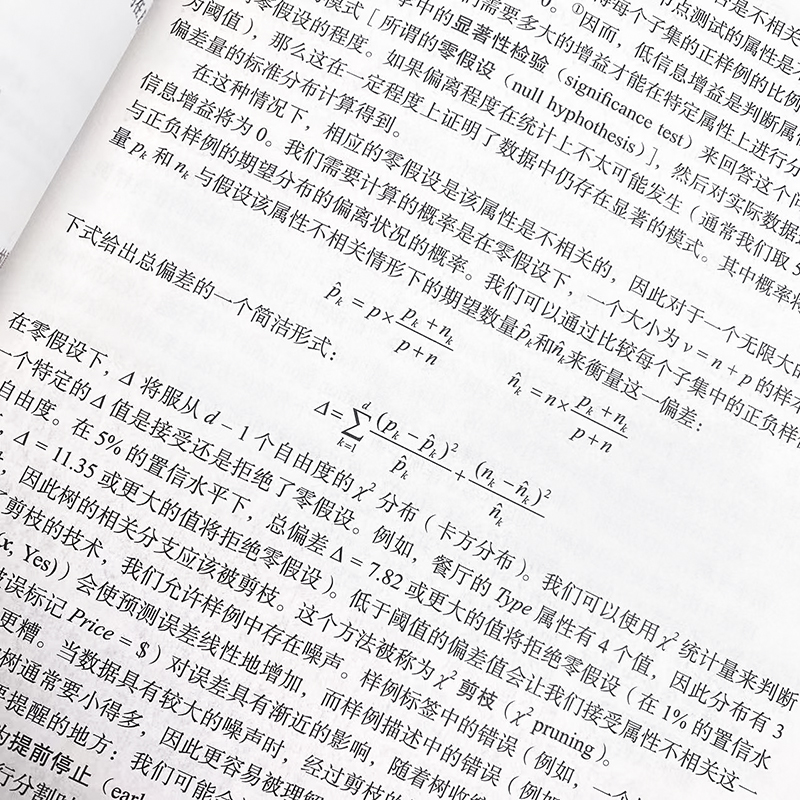 否是不相关
节点测试的属性是不
得每个子集的正样例的比例
0。①因而，低信息增益是判断属
们需要多大的增益才能在特定属性上进行分
学中的显著性检验（significance test）来回答这个问
模式［所谓的零假设（null hyphothesis）］，然后对实际数据
零假设的程度。如果偏离程度在统计上不太可能发生（通常我们取 5
为阈值），那么这在一定程度上证明了数据中仍存在显著的模式。其中概率将
偏差量的标准分布计算得到。
在这种情况下，相应的零假设是该属性是不相关的，因此对于一个无限大的
信息增益将为 0。我们需要计算的概率是在零假设下，一个大小为 v = n + p 的样本
与正负样例的期望分布的偏离状况的概率。我们可以通过比较每个子集中的正负样例
量 pₖ 和 nₖ 与假设该属性不相关情形下的期望数量 p̂ₖ 和 n̂ₖ 来衡量这一偏差：
p̂ₖ = p × (pₖ + nₖ)/(p + n)  n̂ₖ = n × (pₖ + nₖ)/(p + n)
下式给出总偏差的一个简洁形式：
Δ = ∑ₖ₌₁ᵈ (pₖ − p̂ₖ)²/p̂ₖ + (nₖ − n̂ₖ)²/n̂ₖ
在零假设下，Δ 将服从 d − 1 个自由度的 χ² 分布（卡方分布）。我们可以使用 χ² 统计量来判断
一个特定的 Δ 值是接受还是拒绝了零假设。例如，餐厅的 Type 属性有 4 个值，因此分布有 3
自由度。在 5% 的置信水平下，总偏差 Δ = 7.82 或更大的值将拒绝零假设（在 1% 的置信水
，Δ = 11.35 或更大的值将拒绝零假设）。低于阈值的偏差值会让我们接受属性不相关这一
，因此树的相关分支应该被剪枝。这个方法被称为 χ² 剪枝（χ² pruning）。
剪枝的技术，我们允许样例中存在噪声。样例标签中的错误（例如，一个
(x, Yes)）会使预测误差线性地增加，而样例描述中的错误（例如
错误标记 Price = $）对误差具有渐近的影响，随着树收缩
更糟。当数据具有较大的噪声时，经过剪枝的
树通常要小得多，因此更容易被理解
要提醒的地方：我们可能会
为提前停止（earl
行分割时